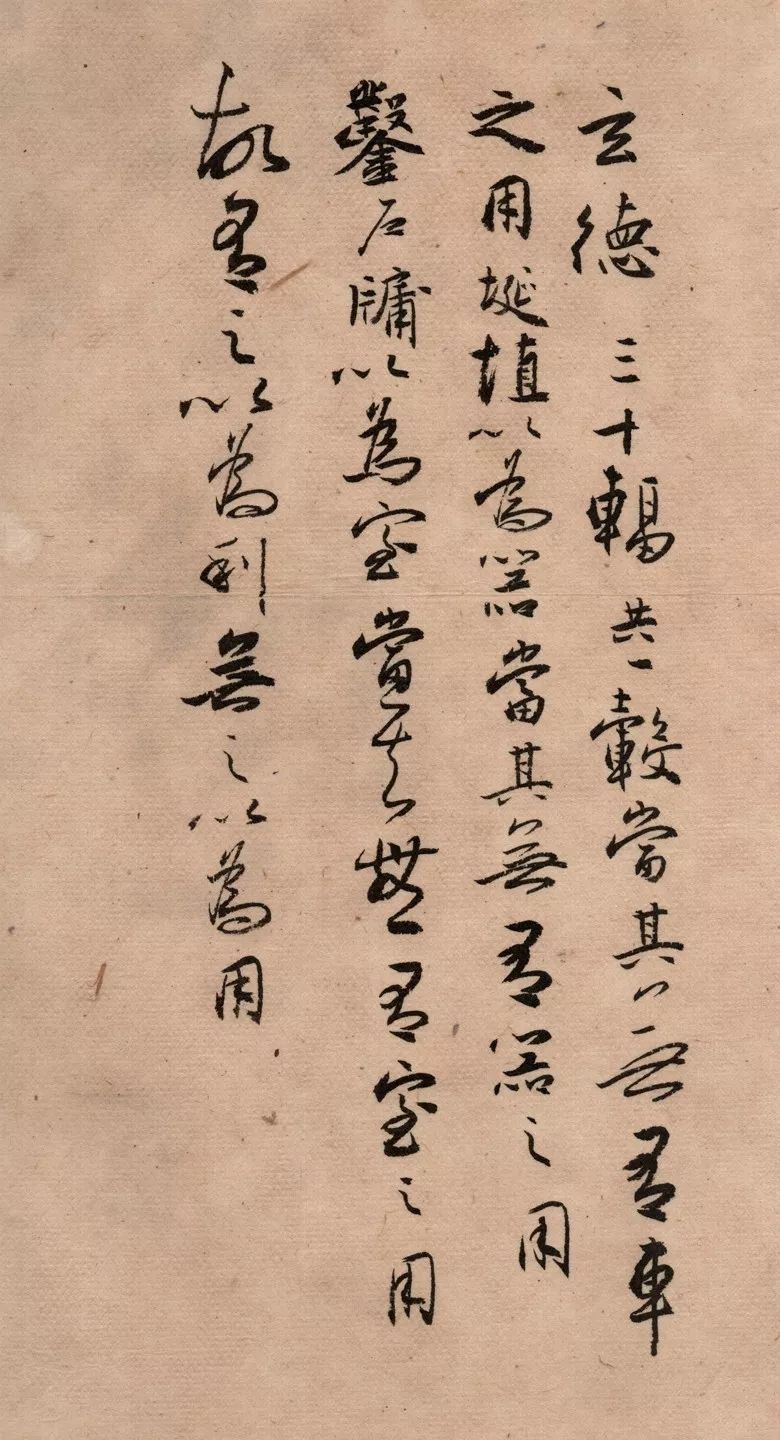 玄德 三十輻共一轂當其無有車
之用埏埴以為器當其無有器之用
鑿戶牖以為室當其無有室之用
故有之以為利無之以為用